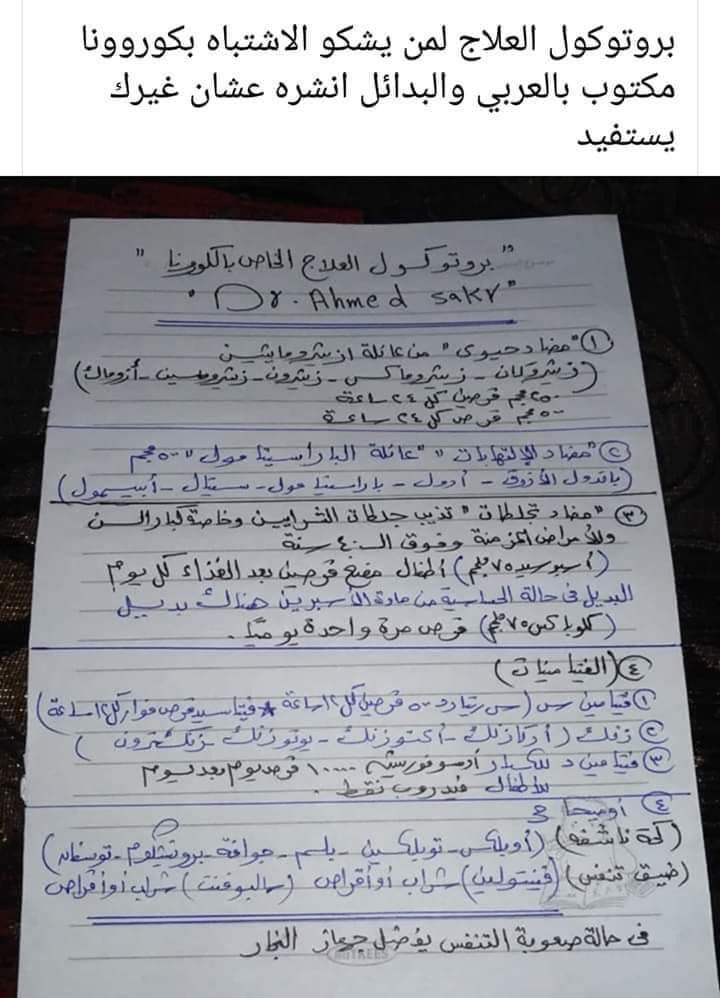 بروتوكول العلاج لمن يشكو الاشتباه بكوروونا
مكتوب بالعربي والبدائل انشره عشان غيرك
يستفيد
" بروتوكول العلاج الخاص بالكورونا "
Dr. Ahmed sakr
① "مضاد حيوي" من عائلة ازيثرومايسين
(زيثروكان - زيثروماكس - زيثرون - زيثروميسين - أزوماك)
٢٥٠ مجم قرصين كل ٢٤ ساعة
٥٠٠ مجم قرص كل ٢٤ ساعة
② "مضاد الإلتهابات" "عائلة الباراسيتامول" ٥٠٠ مجم
(بانادول الأزرق - أدول - باراسيتامول - سيتال - أبيمول)
③ "مضاد تجلطات" تذيب جلطات الشرايين وخاصة كبار السن
والأمراض المزمنة وفوق الـ ٤٠ سنة
(أسبوسيد ٧٥ ملجم) أطفال مضغ قرصين بعد الغذاء كل يوم
البديل في حالة الحساسية من مادة الأسبرين هناك بديل
(كلوباكس ٧٥ ملجم) قرص مرة واحدة يوميًا.
④ (الفيتامينات)
① فيتامين سي (سي ريتارد ٥٠٠ قرصين كل ١٢ ساعة * فيتاسيد قرص فوار كل ١٢ ساعة)
② زنك (أوكتازنك - أكتوزنك - يوتوزنك - زنكترون)
③ فيتامين د للكبار أوسوفورتين ١٠٠٠٠ قرص يوم بعد يوم
للأطفال فيدروب نقط.
④ أوميجا 3
(كحة ناشفة) (أوبلكس - توبلكسيل - بلسم - جوافة - برونشكوم - توسفان)
(ضيق تنفس) (فنتولين) شراب أو أقراص (سالبوفنت) شراب أو أقراص
فى حالة صعوبة التنفس يفضل جهاز البخار